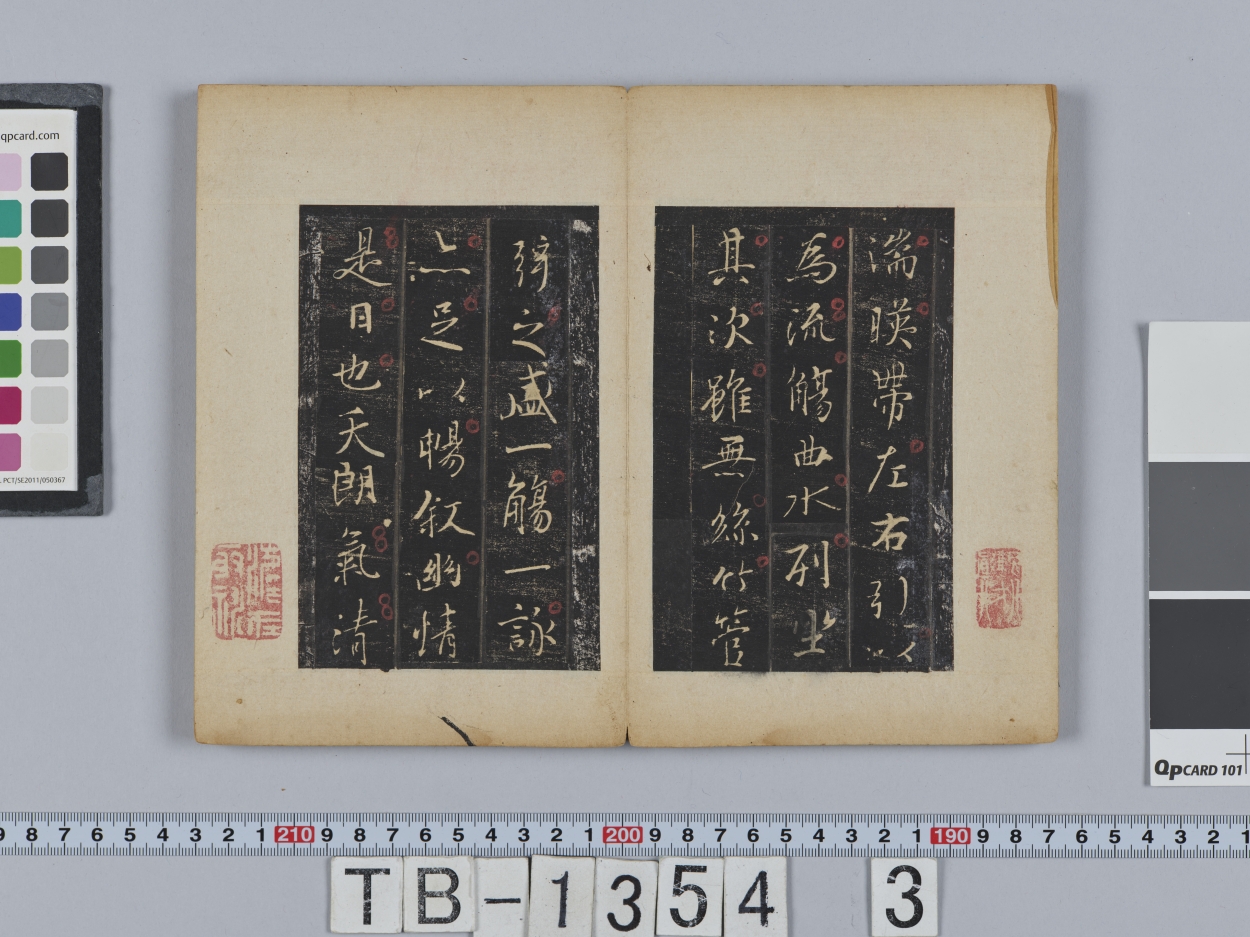 湍暎帶左右引以
為流觴曲水列坐
其次雖無絲竹管
弦之盛一觴一詠
亦足以暢叙幽情
是日也天朗氣清
qpcard.com
PCT/SE2011/050367
QPCARD 101
9 8 7 6 5 4 3 2 1 210 9 8 7 6 5 4 3 2 1 200 9 8 7 6 5 4 3 2 1 190 9 8 7 6 5 4 3 2 1
TB-1354 3